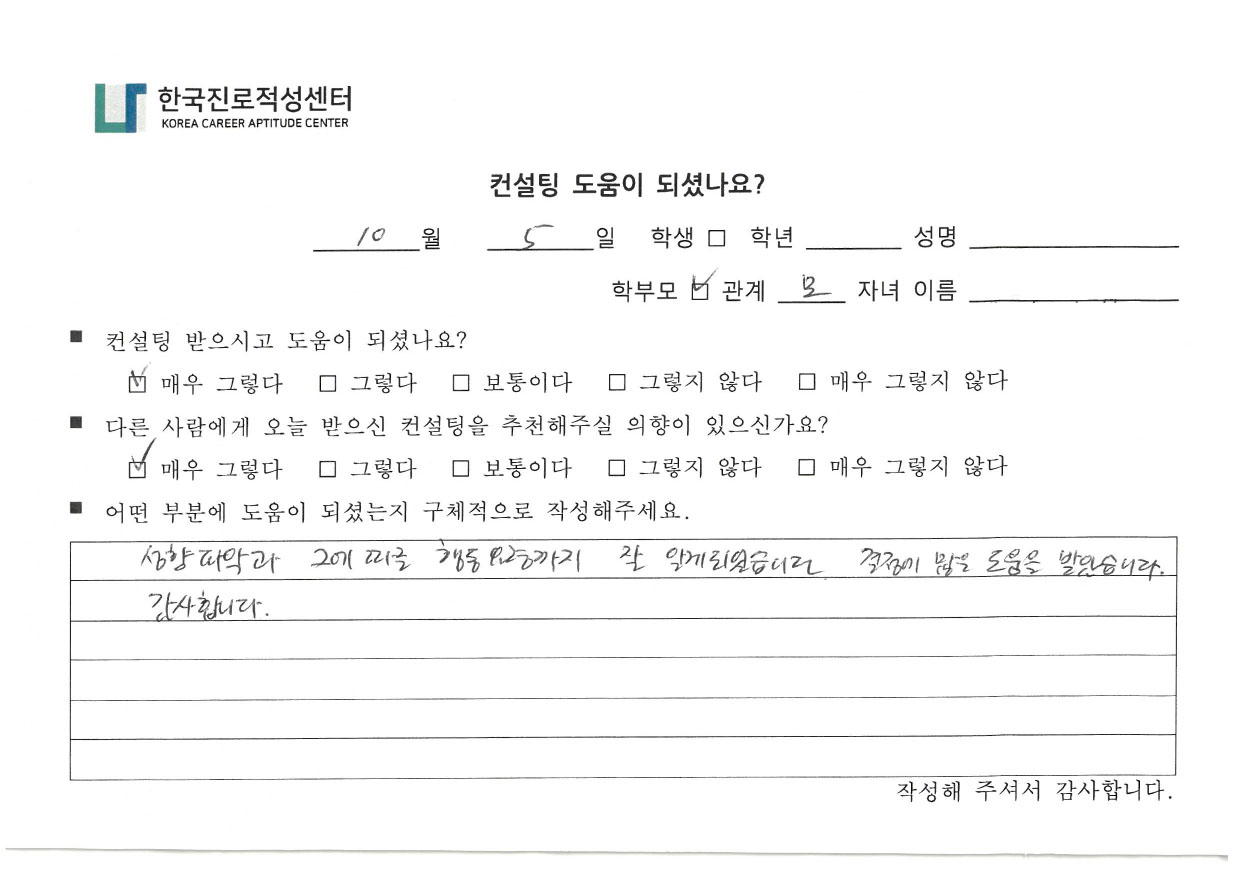 한국진로적성센터
KOREA CAREER APTITUDE CENTER
컨설팅 도움이 되셨나요?
10 월 5 일 학생 □ 학년 성명
학부모 ☑ 관계 모 자녀 이름
■ 컨설팅 받으시고 도움이 되셨나요?
☑ 매우 그렇다 □ 그렇다 □ 보통이다 □ 그렇지 않다 □ 매우 그렇지 않다
■ 다른 사람에게 오늘 받으신 컨설팅을 추천해주실 의향이 있으신가요?
☑ 매우 그렇다 □ 그렇다 □ 보통이다 □ 그렇지 않다 □ 매우 그렇지 않다
■ 어떤 부분에 도움이 되셨는지 구체적으로 작성해주세요.
성향파악과 그에 따른 행동요령까지 잘 알게되었습니다. 결정에 많은 도움을 받았습니다.
감사합니다.
작성해 주셔서 감사합니다.